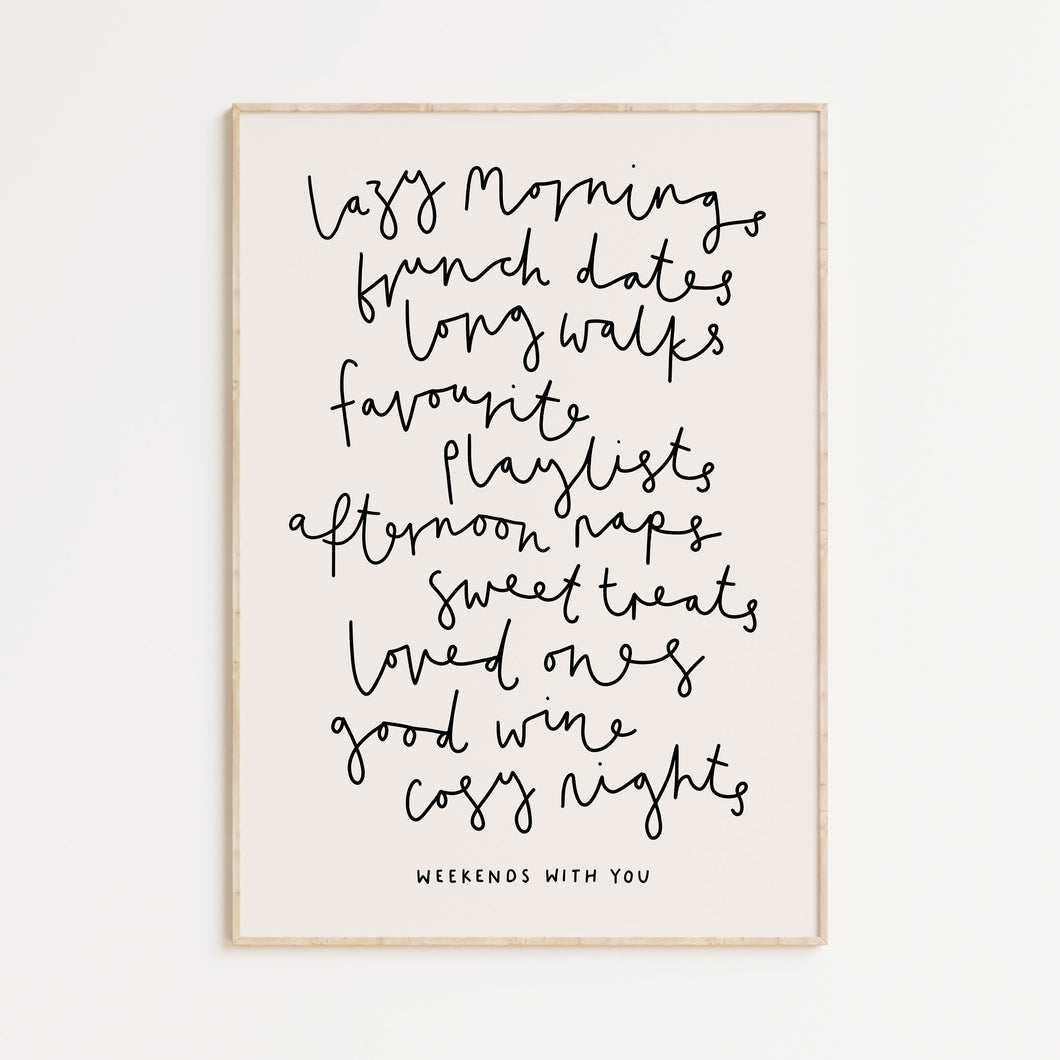 lazy mornings
brunch dates
long walks
favourite
playlists
afternoon naps
sweet treats
loved ones
good wine
cosy nights
WEEKENDS WITH YOU